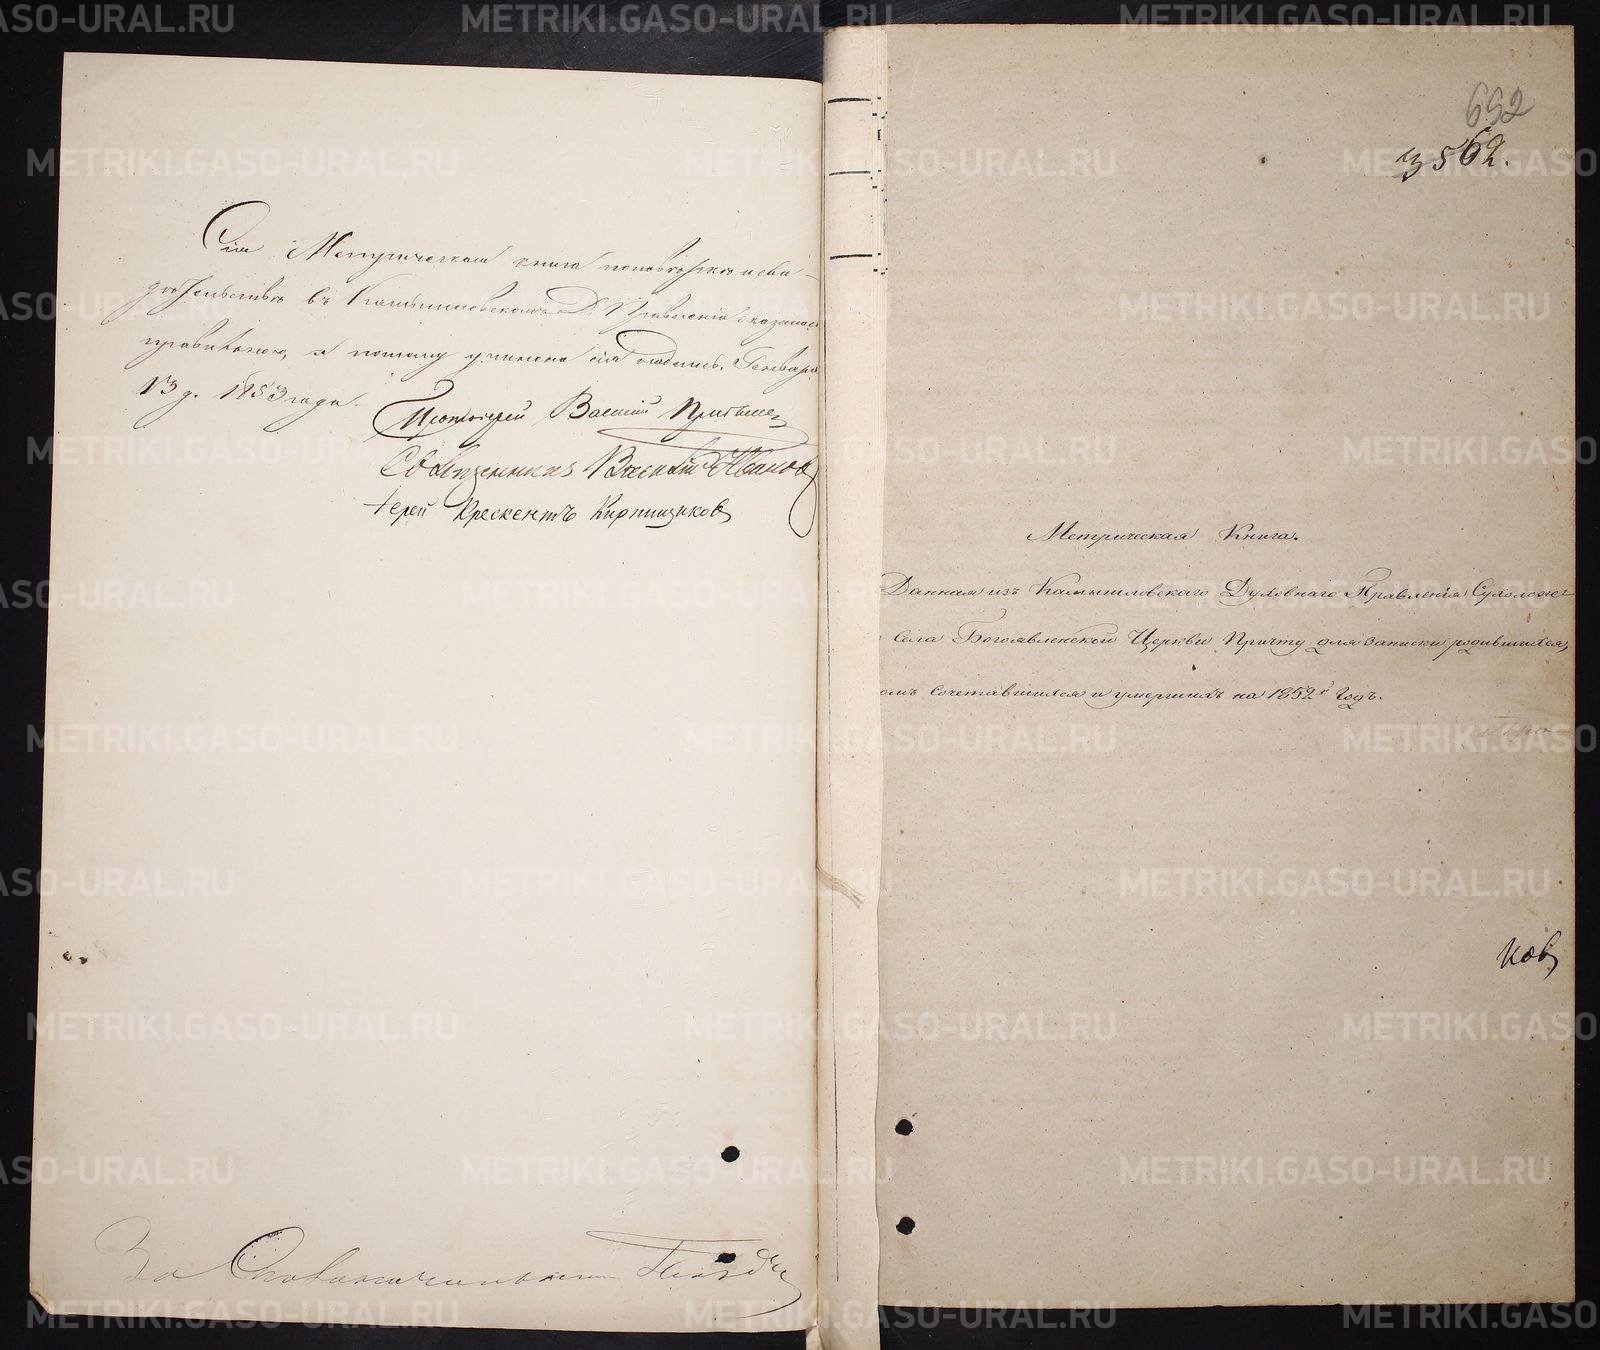 Сія Метрическая книга по повѣркѣ и сви-
дѣтельствѣ въ Камышловскомъ Д. Правленіи оказалась
правильною, а потому учинена сія подпись. Генваря
13 д. 1853 года.
Протоіерей Василій
Священникъ Василій Ивановъ
Іерей Крескентъ Кирпищиковъ
За
652
3562.
Метрическая Книга.
Данная изъ Камышловскаго Духовнаго Правленія Сухоложс-
села Богоявленской Церкви Причту для записки родившихся,
омъ сочетавшихся и умершихъ на 1852й Годъ.
ковъ
METRIKI.GASO-URAL.RU